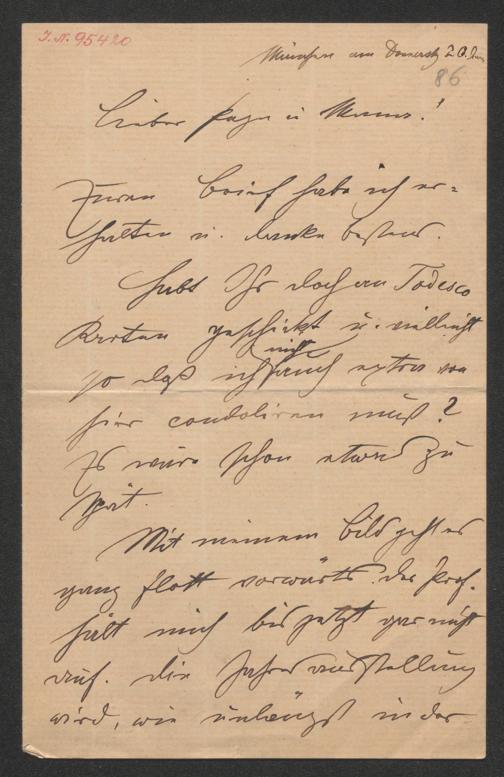 J. N. 95420
München am Donnerstg 20. Jan.
86
Lieber Papa u Mama!
Euren Brief habe ich er-
halten u. danke bestens.
Habt Ihr doch an Todesco
Karten geschickt u. vielleicht
nicht
so daß ich auch extra von
hier condoliren muß?
Es wäre schon etwas zu
spät.
Mit meinem Bild geht es
ganz flott vorwärts. der Prof.
hält mich bis jetzt gar nicht
auf. die Jahresausstellung
wird, wie unlängst in der